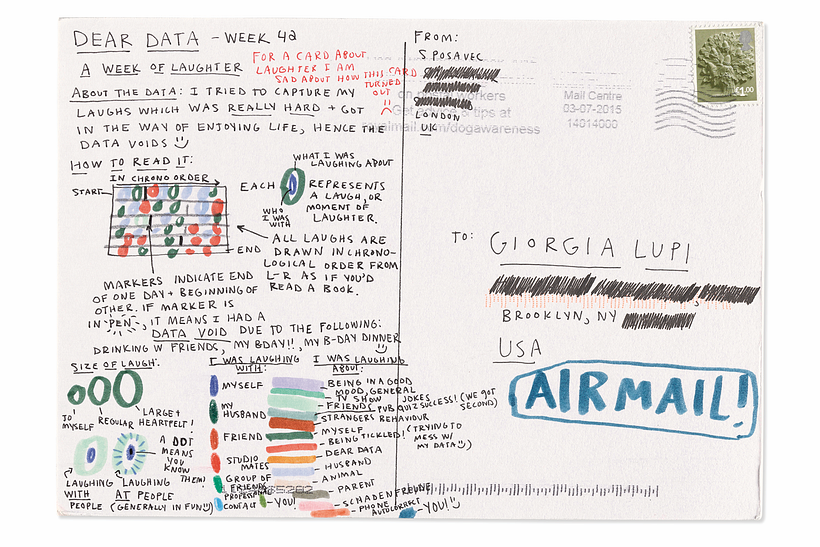 DEAR DATA - WEEK 42
A WEEK OF LAUGHTER
FOR A CARD ABOUT
LAUGHTER I AM
SAD ABOUT HOW THIS CARD
TURNED
OUT
ABOUT THE DATA: I TRIED TO CAPTURE MY
LAUGHS WHICH WAS REALLY HARD + GOT
IN THE WAY OF ENJOYING LIFE, HENCE THE
DATA VOIDS
HOW TO READ IT:
IN CHRONO ORDER
START
END
WHAT I WAS
LAUGHING ABOUT
EACH
REPRESENTS
A LAUGH, OR
MOMENT OF
LAUGHTER.
WHO
I WAS
WITH
ALL LAUGHS ARE
DRAWN IN CHRONO-
LOGICAL ORDER FROM
L-R AS IF YOU'D
READ A BOOK.
MARKERS INDICATE END
OF ONE DAY + BEGINNING OF
OTHER. IF MARKER IS
IN 'PEN', IT MEANS I HAD A
DATA VOID DUE TO THE FOLLOWING:
DRINKING W FRIENDS, MY BDAY!!, MY B-DAY DINNER
SIZE OF LAUGH:
TO
MYSELF
REGULAR
LARGE +
HEARTFELT!
A DOT
MEANS
YOU
KNOW
THEM!
LAUGHING
WITH
PEOPLE
LAUGHING
AT PEOPLE
(GENERALLY IN FUN)
I WAS LAUGHING
WITH:
MYSELF
MY
HUSBAND
FRIEND
STUDIO
MATES
GROUP OF
FRIENDS
PROFESSIONAL
CONTACT
YOU!
I WAS LAUGHING
ABOUT:
BEING IN A GOOD
MOOD, GENERAL
TV SHOW JOKES
FRIENDS PUB QUIZ SUCCESS! (WE GOT
SECOND)
STRANGERS BEHAVIOUR
MYSELF (TRYING TO
MESS W/
MY DATA)
BEING TICKLED!
DEAR DATA
HUSBAND
ANIMAL
PARENT
SCHADENFREUDE
PHONE
AUTOCORRECT
YOU!
FROM:
S POSAVEC
LONDON
UK
tips at
royalmail.com/dogawareness
Mail Centre
03-07-2015
14014000
£1.00
TO: GIORGIA LUPI
BROOKLYN, NY
USA
AIRMAIL!